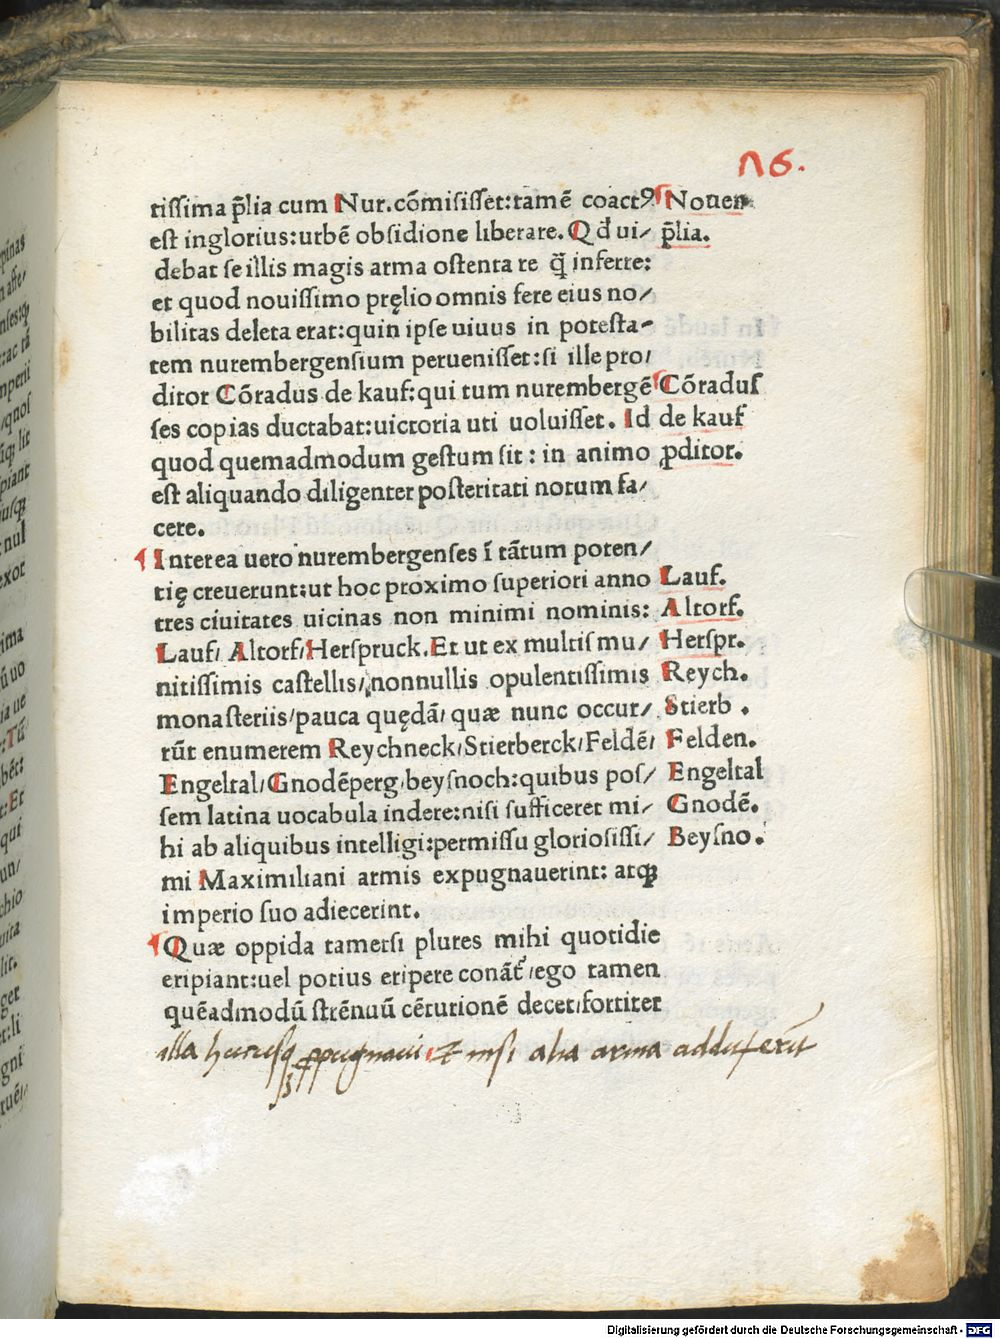 n6.
tissima p̄lia cum Nur. cōmisisset: tamē coactꝰ
est inglorius: urbē obsidione liberare. Qd̄ ui/
debat se illis magis arma ostenta re q̄̄ inferre:
et quod nouissimo pręlio omnis fere eius no/
bilitas deleta erat: quin ipse uiuus in potesta-
tem nurembergensium peruenisset: si ille pro/
ditor Cōradus de kauf: qui tum nurembergē
ses copias ductabat: uictoria uti uoluisset. Id
quod quemadmodum gestum sit: in animo
est aliquando diligenter posteritati notum fa/
cere.
¶ Interea uero nurembergenses ī tātum poten/
tię creuerunt: ut hoc proximo superiori anno
tres ciuitates uicinas non minimi nominis:
Lauf/ Altorf/ Herspruck. Et ut ex multis mu/
nitissimis castellis/ nonnullis opulentissimis
monasteriis/ pauca quędā/ quæ nunc occur/
rūt enumerem Reychneck/ Stierberck/ Feldē/
Engeltal/ Gnodēperg/ beysnoch: quibus pos/
sem latina uocabula indere: nisi sufficeret mi/
hi ab aliquibus intelligi: permissu gloriosissi/
mi Maximiliani armis expugnauerint: atqꝫ
imperio suo adiecerint.
¶ Quæ oppida tametsi plures mihi quotidie
eripiant: uel potius eripere conāt̄/ ego tamen
quēadmodū strēnuū cēturionē decet: fortiter
¶ Nouen
p̄lia.
¶ Cōradus
de kauf
ꝓditor.
Lauf.
Altorf.
Herspr.
Reych.
Stierb.
Felden.
Engeltal
Gnodē.
Beysno.
illa ꝓpugnaui et nisi alia arma adduxerīt
Digitalisierung gefördert durch die Deutsche Forschungsgemeinschaft - DFG